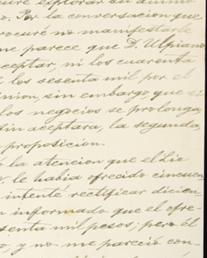 explorar su ánimo
. Por la conversacion que
procuré no manifestarle
me parece que D. Ulpiano
aceptar, ni los cuarenta
los sesenta mil por el
, sin embargo que si
los negocios se prolonga
fin aceptara, la segunda
proposicion.
la atencion que el Lic
le habia ofrecido cincuen
intenté rectificar dicien
informado que el ofre
senta mil pesos; pero él
, y no me pareció con